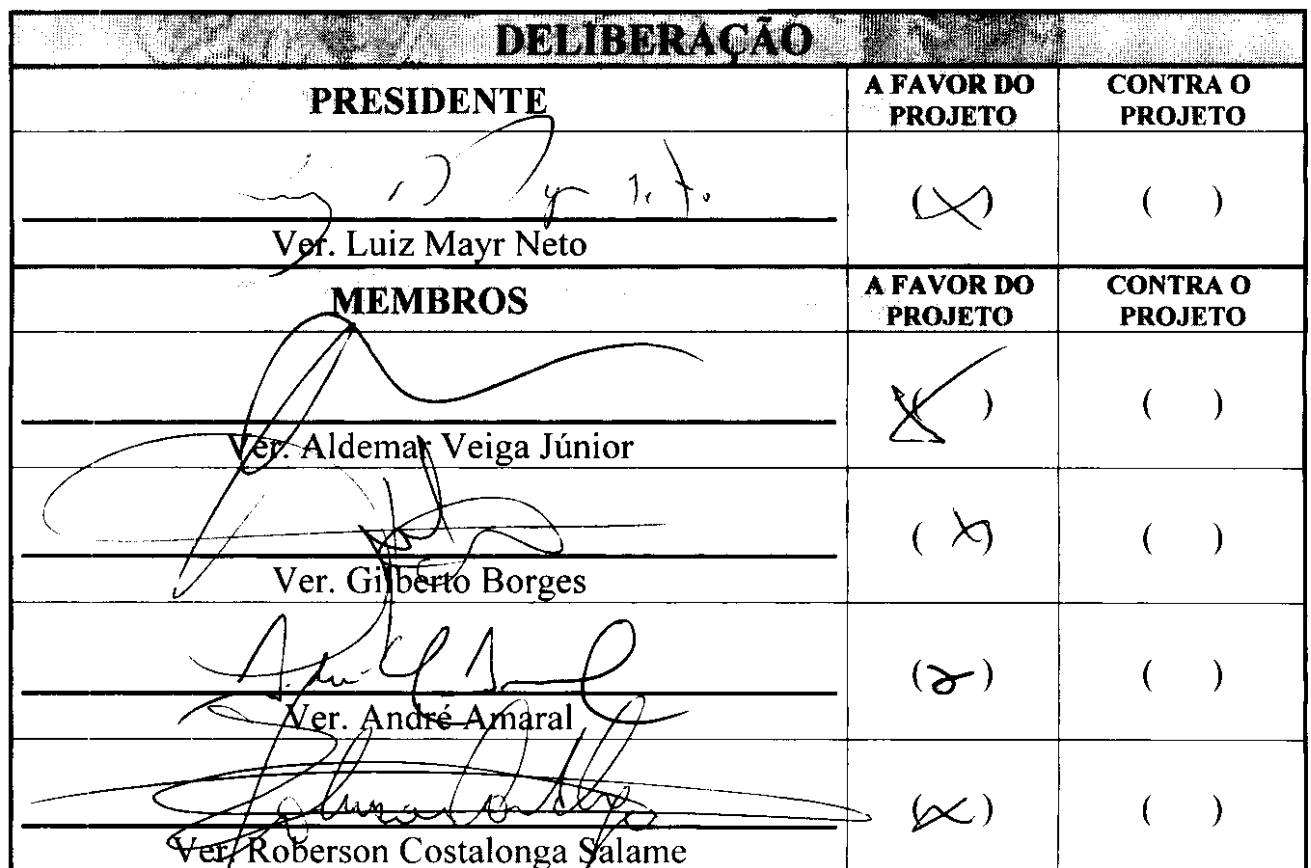 DELIBERAÇÃO
PRESIDENTE
A FAVOR DO PROJETO
CONTRA O PROJETO
(X)
( )
Ver. Luiz Mayr Neto
MEMBROS
A FAVOR DO PROJETO
CONTRA O PROJETO
(X)
( )
Ver. Aldemar Veiga Júnior
(X)
( )
Ver. Gilberto Borges
( )
Ver. André Amaral
(X)
( )
Ver. Roberson Costalonga Salame